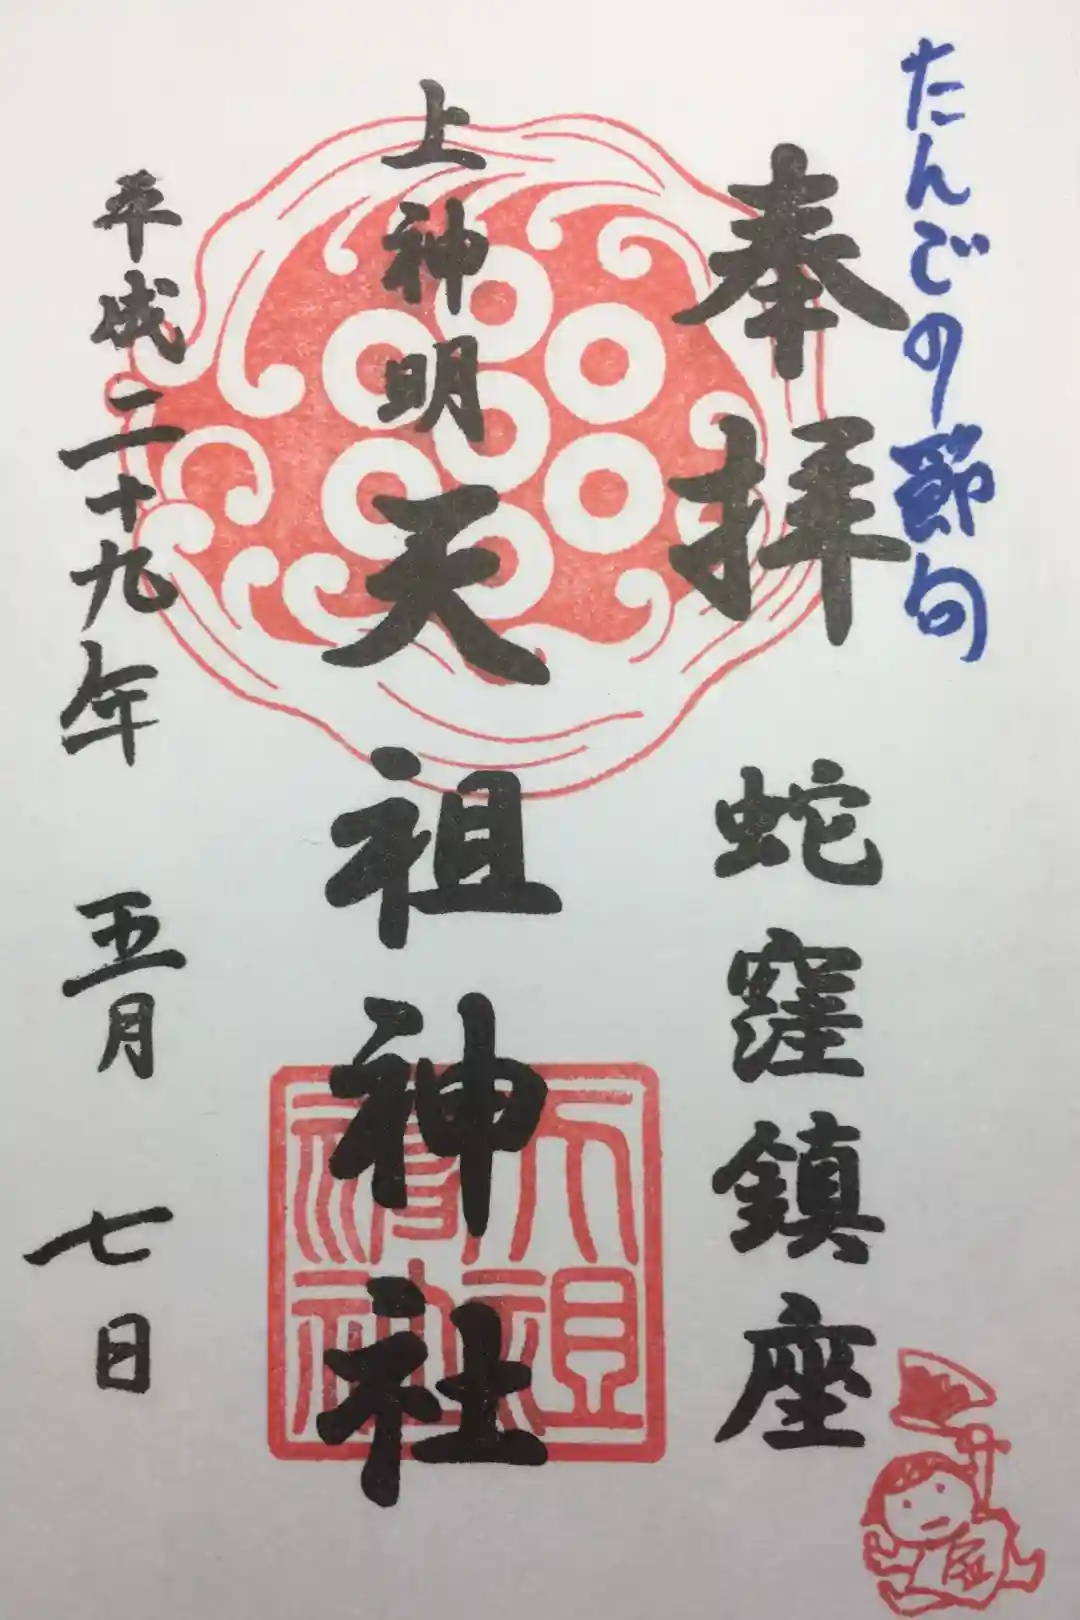 たんごの節句
奉拝
蛇窪鎮座
上神明
天祖神社
平成二十九年 五月 七日